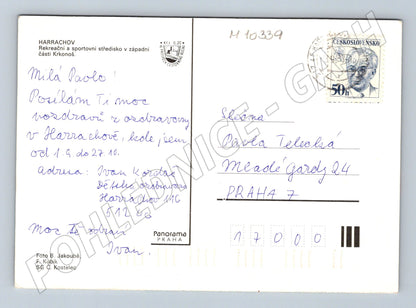 HARRACHOV
Rekreační a sportovní středisko v západní
části Krkonoš
Milá Pavlo!
Posílám Ti moc
pozdravů z ozdravovny
v Harrachově, kde jsem
od 1.9. do 27.10.
adresa: Ivan
Dětská ozdravovna
Harrachov 196
512 46
Moc Tě zdraví
Ivan.
Foto B. Jakoubě,
SČ Č. Kostelec
Panorama
PRAHA
M 10339
ČESKOSLOVENSKO
50h
Slečna
Pavla
Mladé gardy 24
PRAHA 7
17000
POHLEDNICE-GRAFH